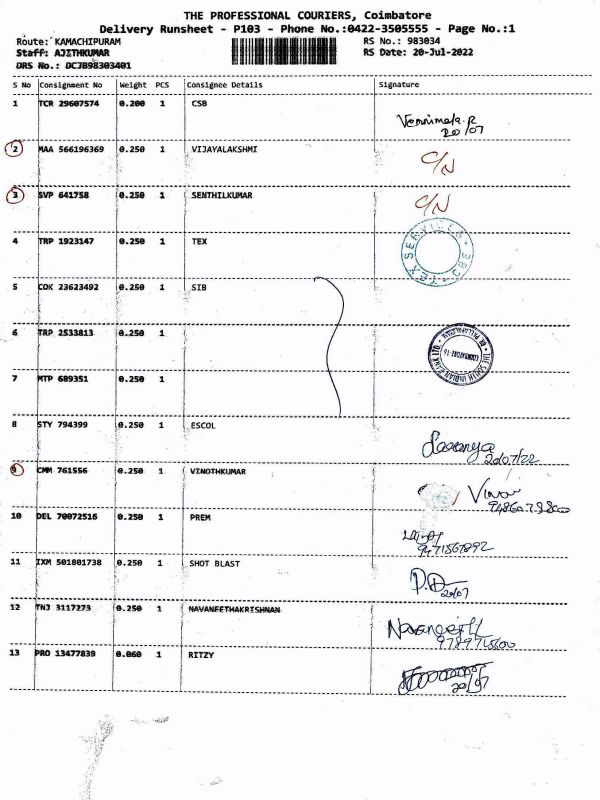 THE PROFESSIONAL COURIERS, Coimbatore
Delivery Runsheet - P103 - Phone No.:0422-3505555 - Page No.:1
Route: KAMACHIPURAM RS No.: 983034
Staff: AJITHKUMAR RS Date: 20-Jul-2022
DRS No.: DCJB98303401
S No Consignment No Weight PCS Consignee Details Signature
1 TCR 29607574 0.200 1 CSB
20/07
2 MAA 566196369 0.250 1 VIJAYALAKSHMI C/N
3 SVP 641758 0.250 1 SENTHILKUMAR C/N
4 TRP 1923147 0.250 1 TEX TEX SERVICES CBE
5 COK 23623492 0.250 1 SIB
6 TRP 2533813 0.250 1 THE SOUTH INDIAN BANK LTD
7 MTP 689351 0.250 1
8 STY 794399 0.250 1 ESCOL Saranya
20/07/22
9 CMM 761556 0.250 1 VINOTHKUMAR
10 DEL 70072516 0.250 1 PREM
11 IXM 501801738 0.250 1 SHOT BLAST
20/07
12 TNJ 3117273 0.250 1 NAVANEETHAKRISHNAN
13 PRO 13477839 0.060 1 RITZY
20/07